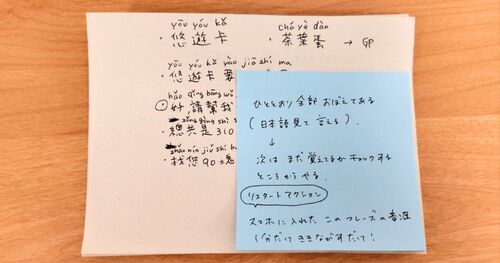 yōu yóu kǎ
・悠遊卡
chá yè dàn
・茶葉蛋 →
yōu yóu kǎ yào jiā zhí ma
・悠遊卡 要
hǎo qǐng bāng wǒ
好,請幫我
zǒng gòng shì
・總共是310
zhǎo nín jiǔ shí
・找您90塊
ひととおり全部 おぼえてある
(日本語見て 言える).
↓
次は まだ覚えてるか チェックする
ところからやる.
リスタートアクション
スマホに入れた このフレーズの音源
1分だけ ききながすだけ!